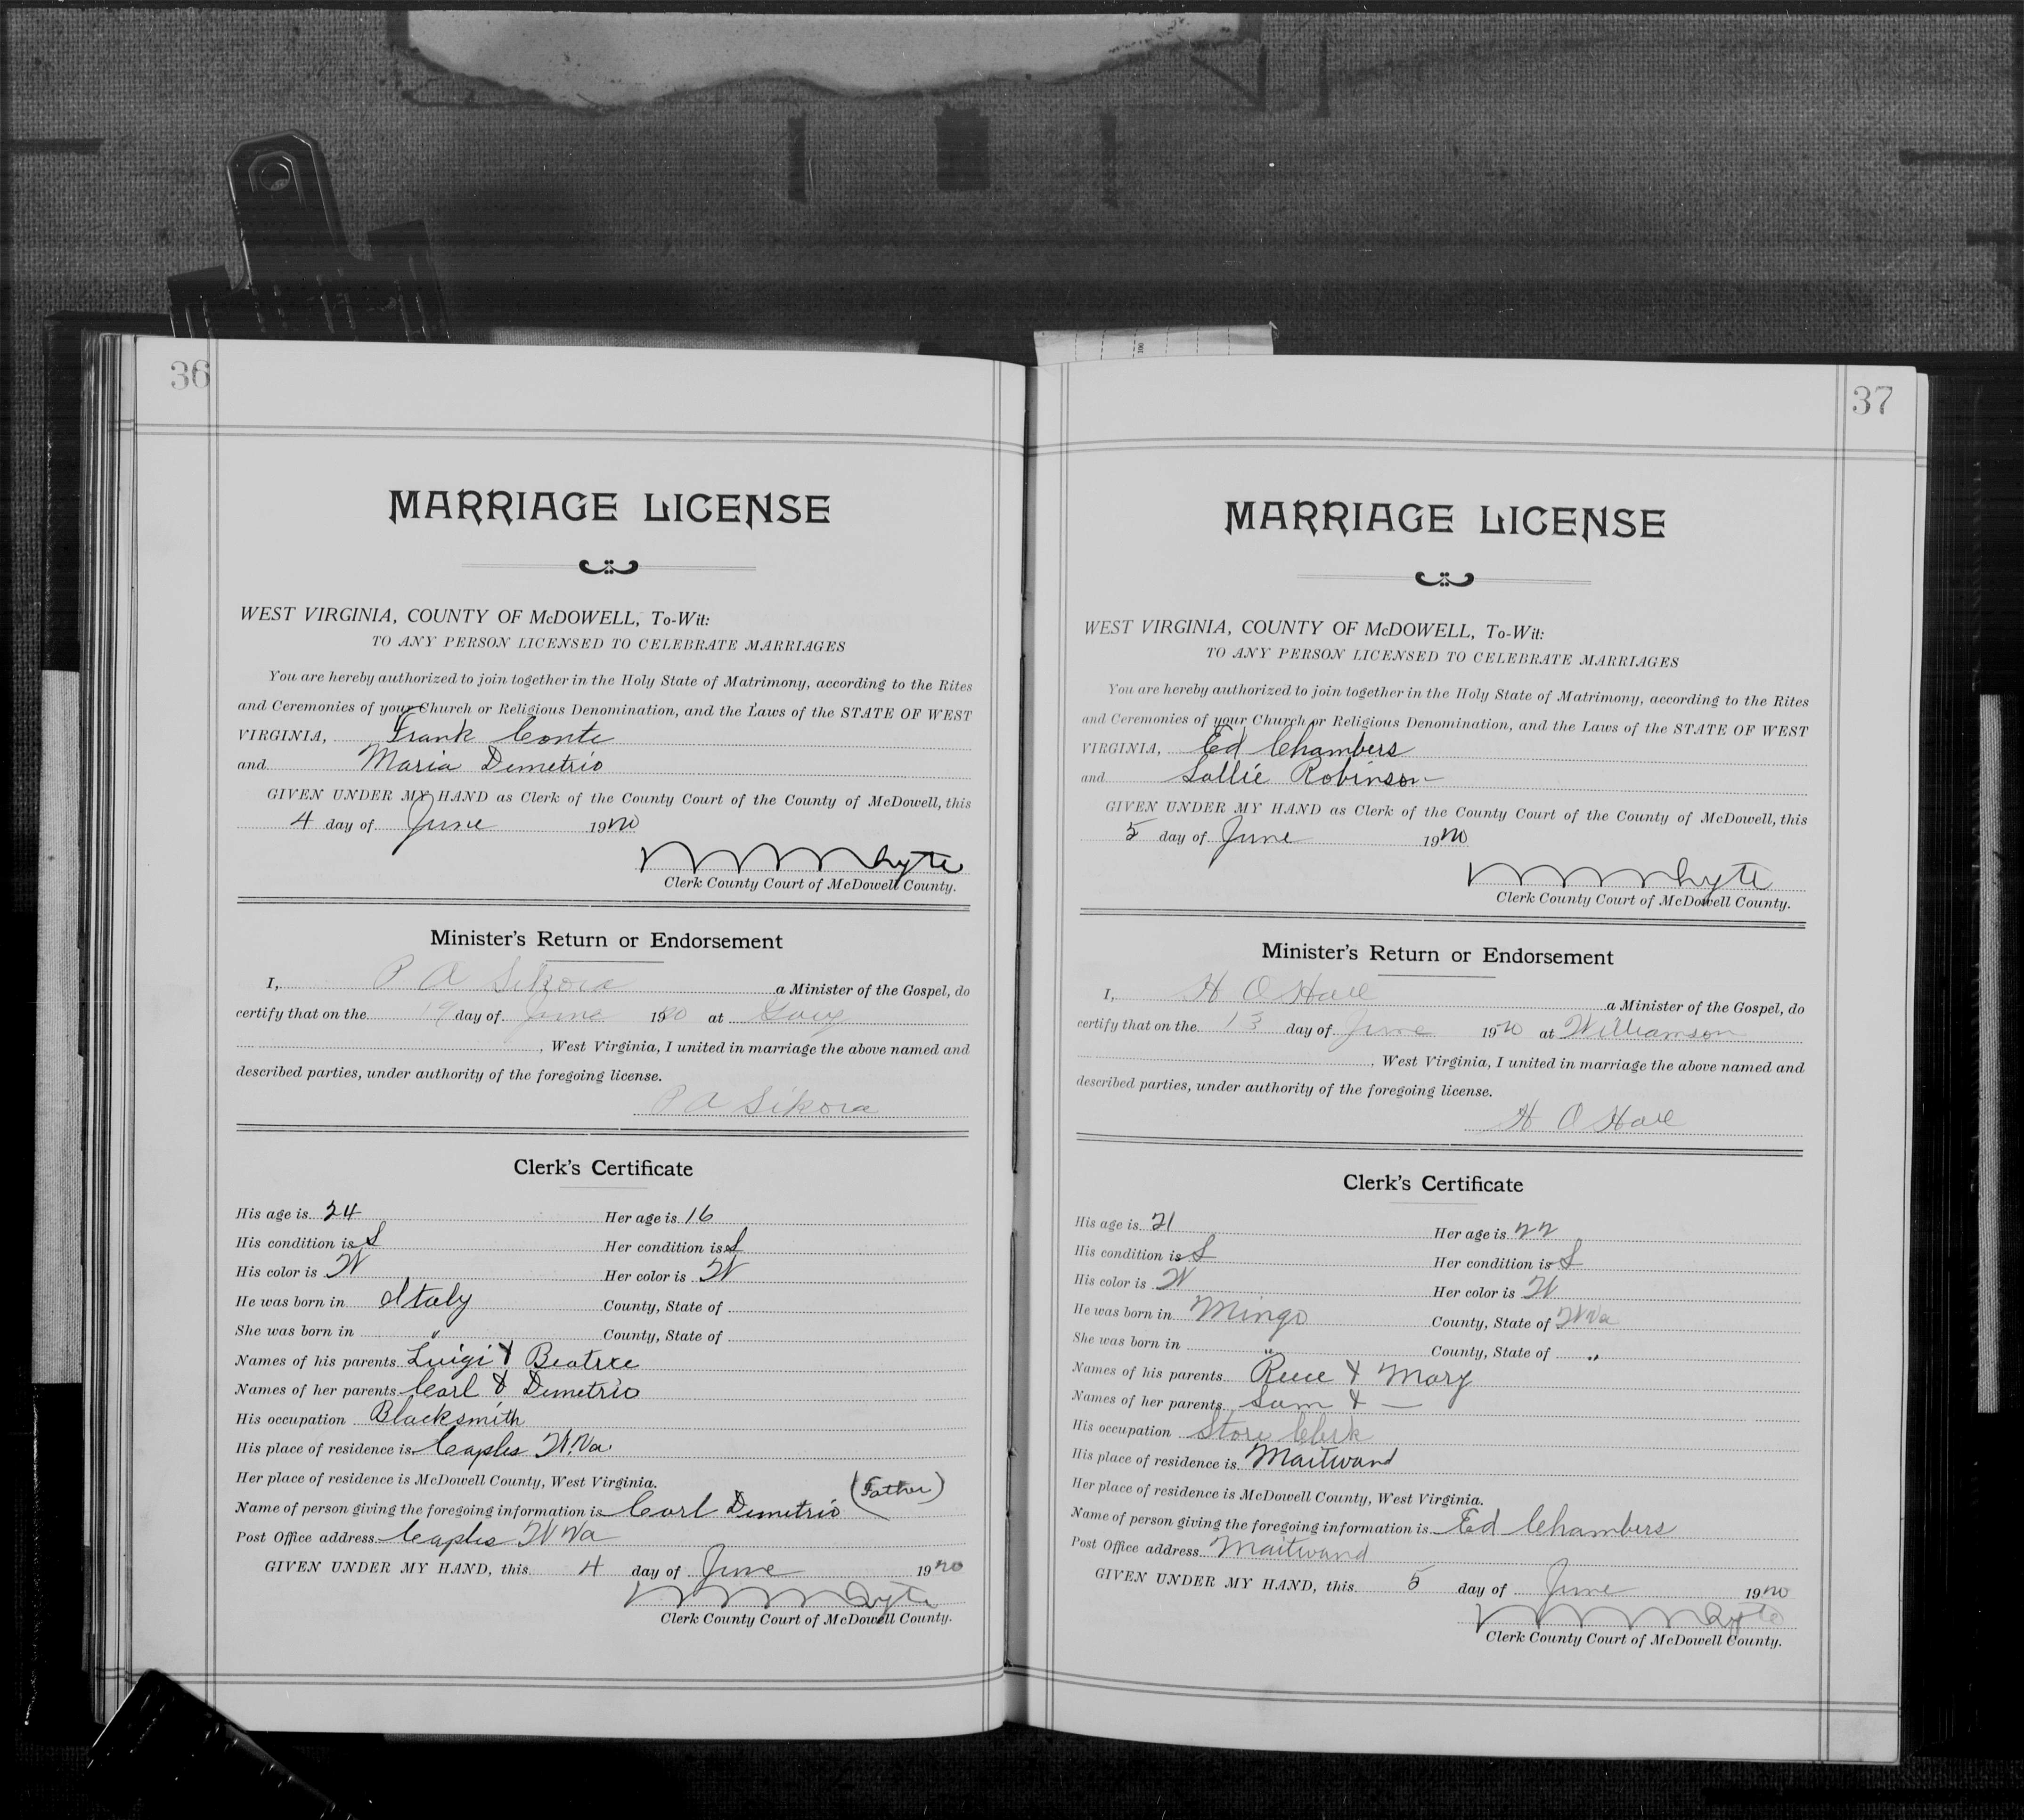 36
MARRIAGE LICENSE
WEST VIRGINIA, COUNTY OF McDOWELL, To-Wit:
TO ANY PERSON LICENSED TO CELEBRATE MARRIAGES
You are hereby authorized to join together in the Holy State of Matrimony, according to the Rites
and Ceremonies of your Church or Religious Denomination, and the Laws of the STATE OF WEST
VIRGINIA, Frank Conte
and Maria Demetrio
GIVEN UNDER MY HAND as Clerk of the County Court of the County of McDowell, this
4 day of June 1920
Whyte
Clerk County Court of McDowell County.
Minister's Return or Endorsement
I, P A Sikora a Minister of the Gospel, do
certify that on the 19 day of June 1920 at Gary
, West Virginia, I united in marriage the above named and
described parties, under authority of the foregoing license.
P A Sikora
Clerk's Certificate
His age is 24 Her age is 16
His condition is S Her condition is S
His color is W Her color is W
He was born in Italy County, State of
She was born in " County, State of
Names of his parents Luigi & Beatrce
Names of her parents Carl & Demetrio
His occupation Blacksmith
His place of residence is Caples W.Va.
Her place of residence is McDowell County, West Virginia.
Name of person giving the foregoing information is Carl Demetrio (Father)
Post Office address Caples W Va
GIVEN UNDER MY HAND, this 4 day of June 1920
Whyte
Clerk County Court of McDowell County.
37
MARRIAGE LICENSE
WEST VIRGINIA, COUNTY OF McDOWELL, To-Wit:
TO ANY PERSON LICENSED TO CELEBRATE MARRIAGES
You are hereby authorized to join together in the Holy State of Matrimony, according to the Rites
and Ceremonies of your Church or Religious Denomination, and the Laws of the STATE OF WEST
VIRGINIA, Ed Chambers
and Sallie Robinson
GIVEN UNDER MY HAND as Clerk of the County Court of the County of McDowell, this
5 day of June 1920
Whyte
Clerk County Court of McDowell County.
Minister's Return or Endorsement
I, H O Hall a Minister of the Gospel, do
certify that on the 13 day of June 1920 at Williamson
, West Virginia, I united in marriage the above named and
described parties, under authority of the foregoing license.
H O Hall
Clerk's Certificate
His age is 21 Her age is 22
His condition is S Her condition is S
His color is W Her color is W
He was born in Mingo County, State of W Va
She was born in " County, State of "
Names of his parents Reece & Mary
Names of her parents Sam & —
His occupation Store Clerk
His place of residence is Maitwand
Her place of residence is McDowell County, West Virginia.
Name of person giving the foregoing information is Ed Chambers
Post Office address Maitwand
GIVEN UNDER MY HAND, this 5 day of June 1920
Whyte
Clerk County Court of McDowell County.